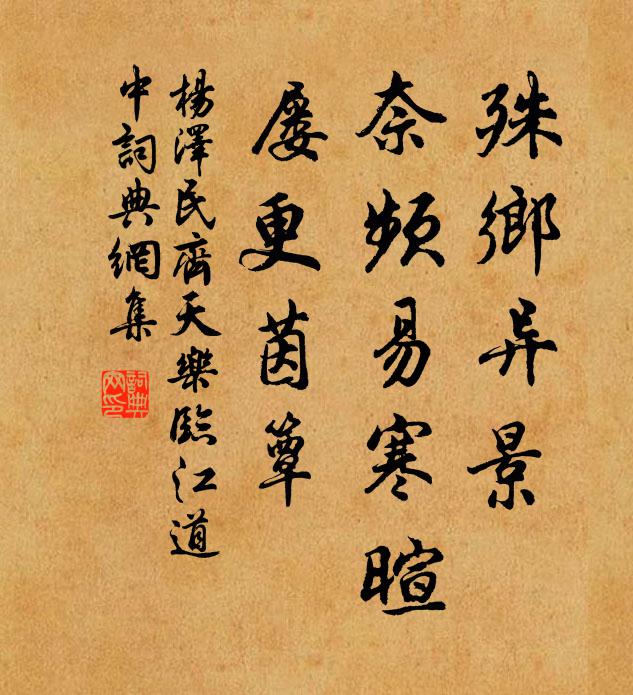 殊鄉异景
奈頻易寒暄
屢更茵簟
楊澤民齊天樂臨江道
中詞典網集
詞典網印